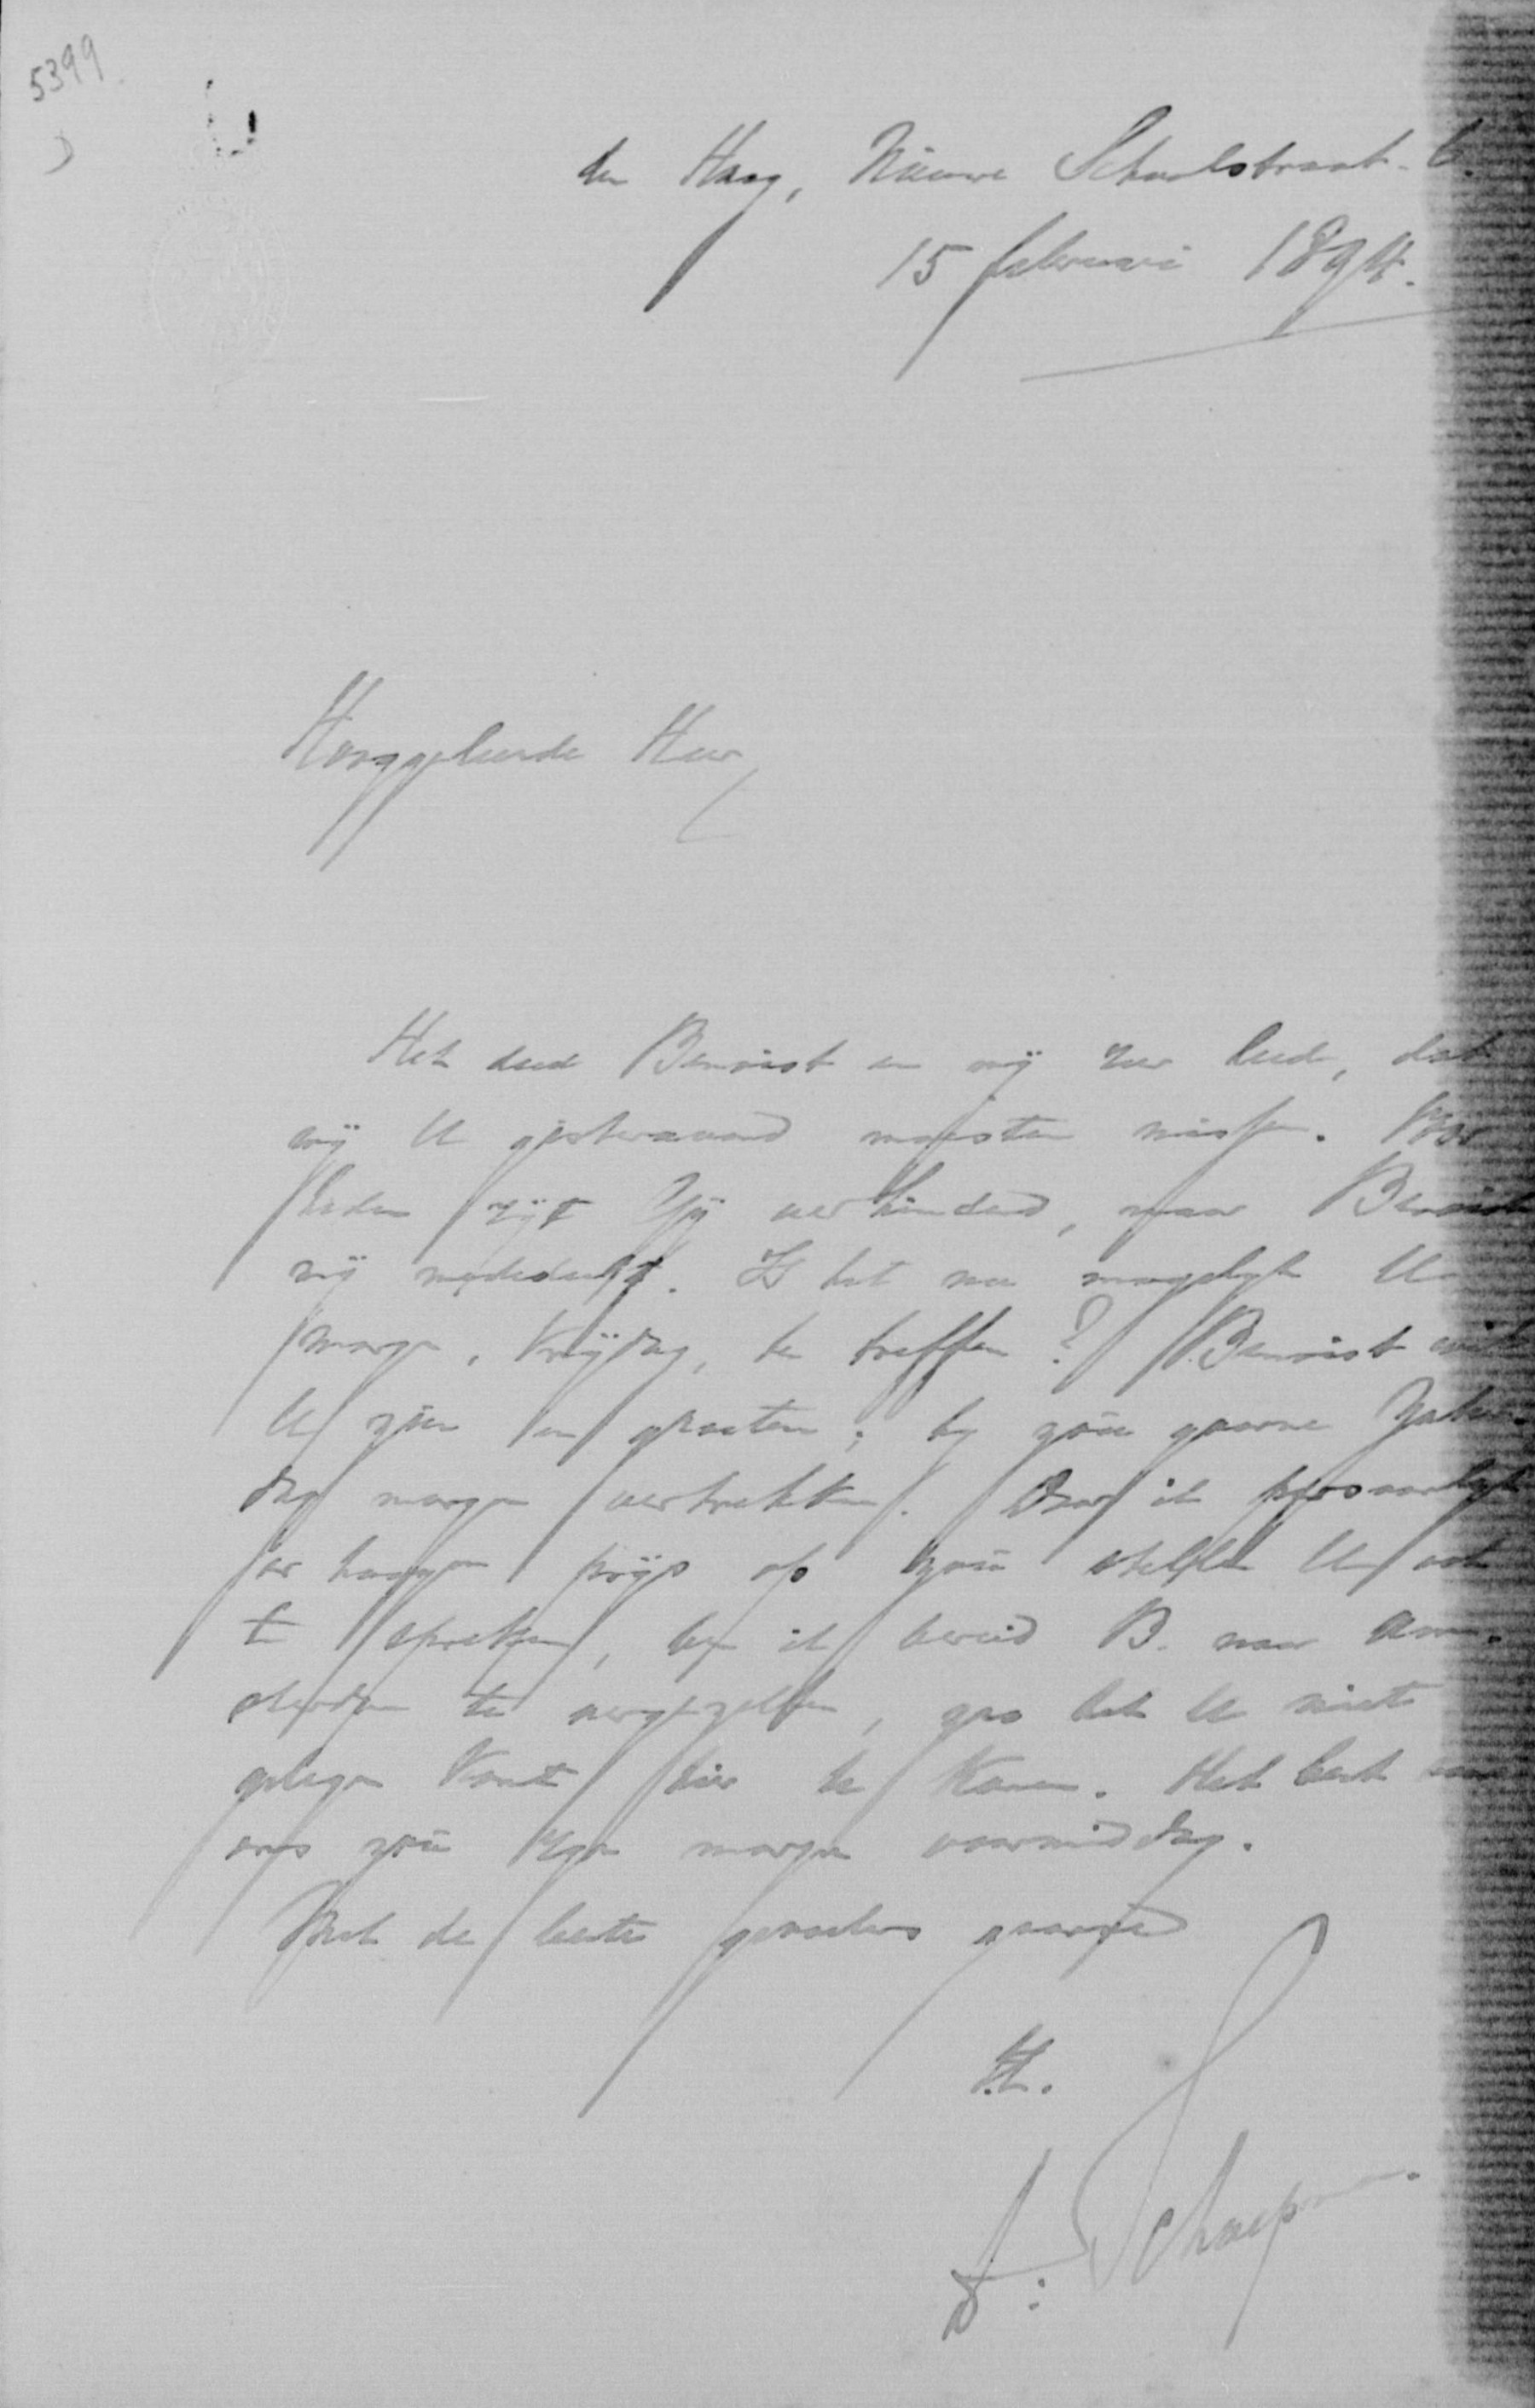 5399
den Haag, Nieuwe Schoolstraat 
15 februari 1894.
Hooggeleerde Heer,
Het deed Benoist en mij zeer leed, dat
wij U gisteravond moesten missen. Voor
heden zijt Gij verhinderd, naar Benoist
mij mededeelt. Is het nu mogelijk U
morgen, Vrijdag, te treffen? Benoist wil
U zien en groeten; hij zou gaarne Zater-
dag morgen vertrekken. Daar ik persoonlijk
er hoogen prijs op zou stellen U ook
te spreken, ben ik bereid B. naar Am-
sterdam te vergezellen, zoo het U niet
gelegen komt hier te komen. Het best
ons zou zijn morgen voormiddag.
Met de beste gevoelens gaarne
Schaepman.